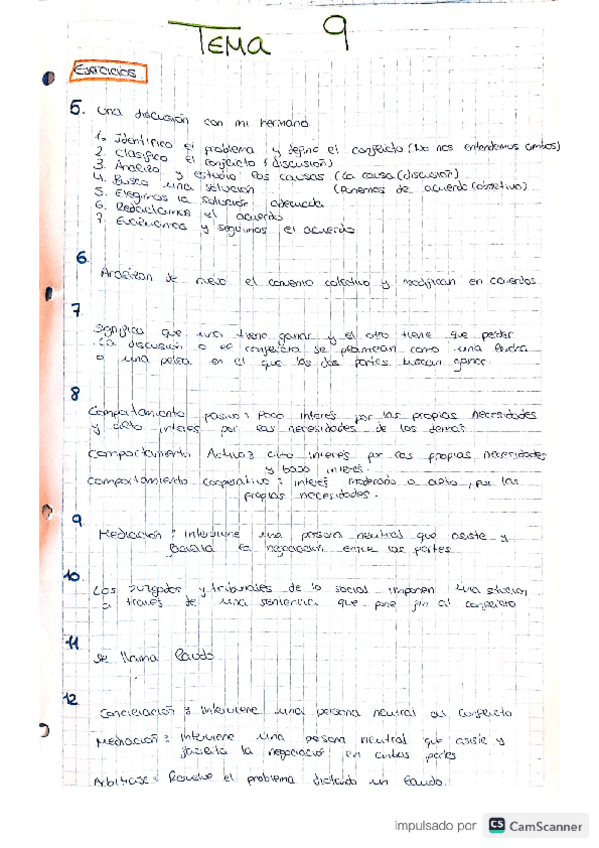 TEMA 9
Ejercicios
5. Una discusión con mi hermano
1. Identifico el problema y define el conflicto (No nos entendemos ambos)
2. Clasifico el conflicto (discusión)
3. Analizo y estudio las causas (La causa (discusión)
4. Busco una solución (Ponemos de acuerdo (objetivo)
5. Elegimos la solución adecuada
6. Redactamos el acuerdo
7. y seguimos el acuerdo
6.
Analizan de nuevo el convenio colectivo y modifican en
7
Significa que uno tiene ganar y el otro tiene que perder
La discusión o el conflicto se plantean como una lucha
o una pelea en el que las dos partes buscan ganar.
8
Comportamiento pasivo: Poco interés por las propias necesidades
y alto interés por las necesidades de los demás
Comportamiento Activo: alto interés por las propias necesidades
y bajo interés.
Comportamiento cooperativo: interés moderado o alto, por las
propias necesidades.
9.
Mediación: Interviene una persona neutral que asiste y
facilita la negociación entre las partes
10.
Los juzgados y tribunales de lo social imponen una
a través de una sentencia que pone fin al conflicto
11
Se llama laudo
12
Conciliación: Interviene una persona neutral al conflicto
Mediación: Interviene una persona neutral que asiste y
facilita la negociación en ambas partes
Arbitraje: Resuelve el problema dictando un laudo.
Impulsado por CS CamScanner